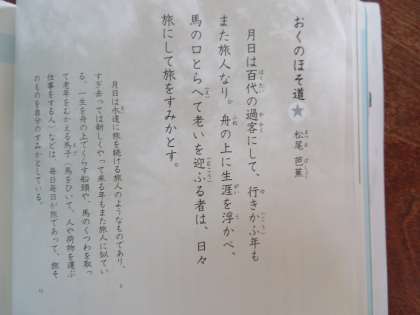 おくのほそ道★
松尾 芭蕉
月日は百代の過客にして、行きかふ年も
また旅人なり。舟の上に生涯を浮かべ、
馬の口とらへて老いを迎ふる者は、日々
旅にして旅をすみかとす。
月日は永遠に旅を続ける旅人のようなものであり、
すぎ去っては新しくやって来る年もまた旅人に似てい
る。一生を舟の上でくらす船頭や、馬のくつわを取っ
て老年をむかえる馬子（馬をひいて、人や荷物を運ぶ
仕事をする人）などは、毎日毎日が旅であって、旅そ
のものを自分のすみかとしている。